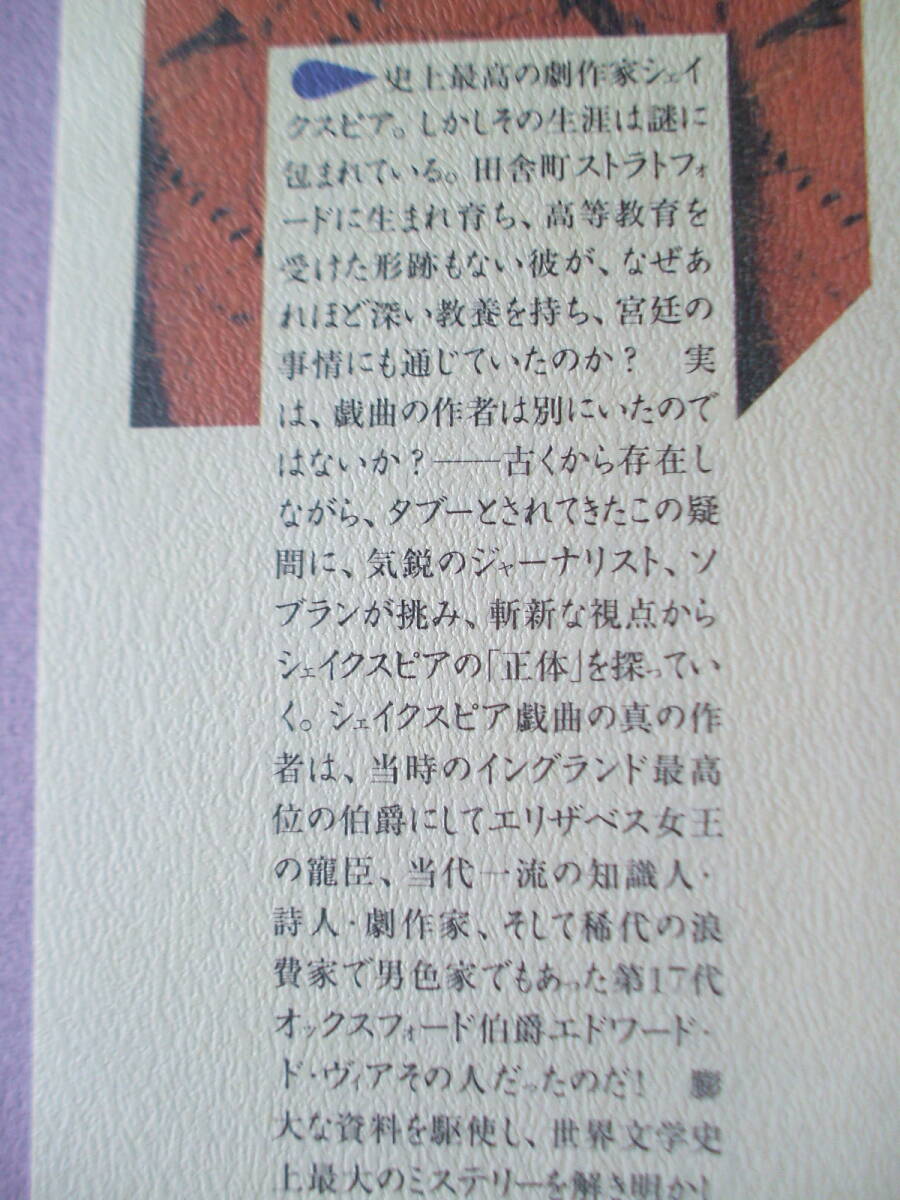 史上最高の劇作家シェイ
クスピア。しかしその生涯は謎に
包まれている。田舎町ストラトフォ
ードに生まれ育ち、高等教育を
受けた形跡もない彼が、なぜあ
れほど深い教養を持ち、宮廷の
事情にも通じていたのか？　実
は、戯曲の作者は別にいたので
はないか？――古くから存在し
ながら、タブーとされてきたこの疑
問に、気鋭のジャーナリスト、ソ
ブランが挑み、斬新な視点から
シェイクスピアの「正体」を探ってい
く。シェイクスピア戯曲の真の作
者は、当時のイングランド最高
位の伯爵にしてエリザベス女王
の寵臣、当代一流の知識人・
詩人・劇作家、そして稀代の浪
費家で男色家でもあった第17代
オックスフォード伯爵エドワード・
ド・ヴィアその人だったのだ！　膨
大な資料を駆使し、世界文学史
上最大のミステリーを解き明かし